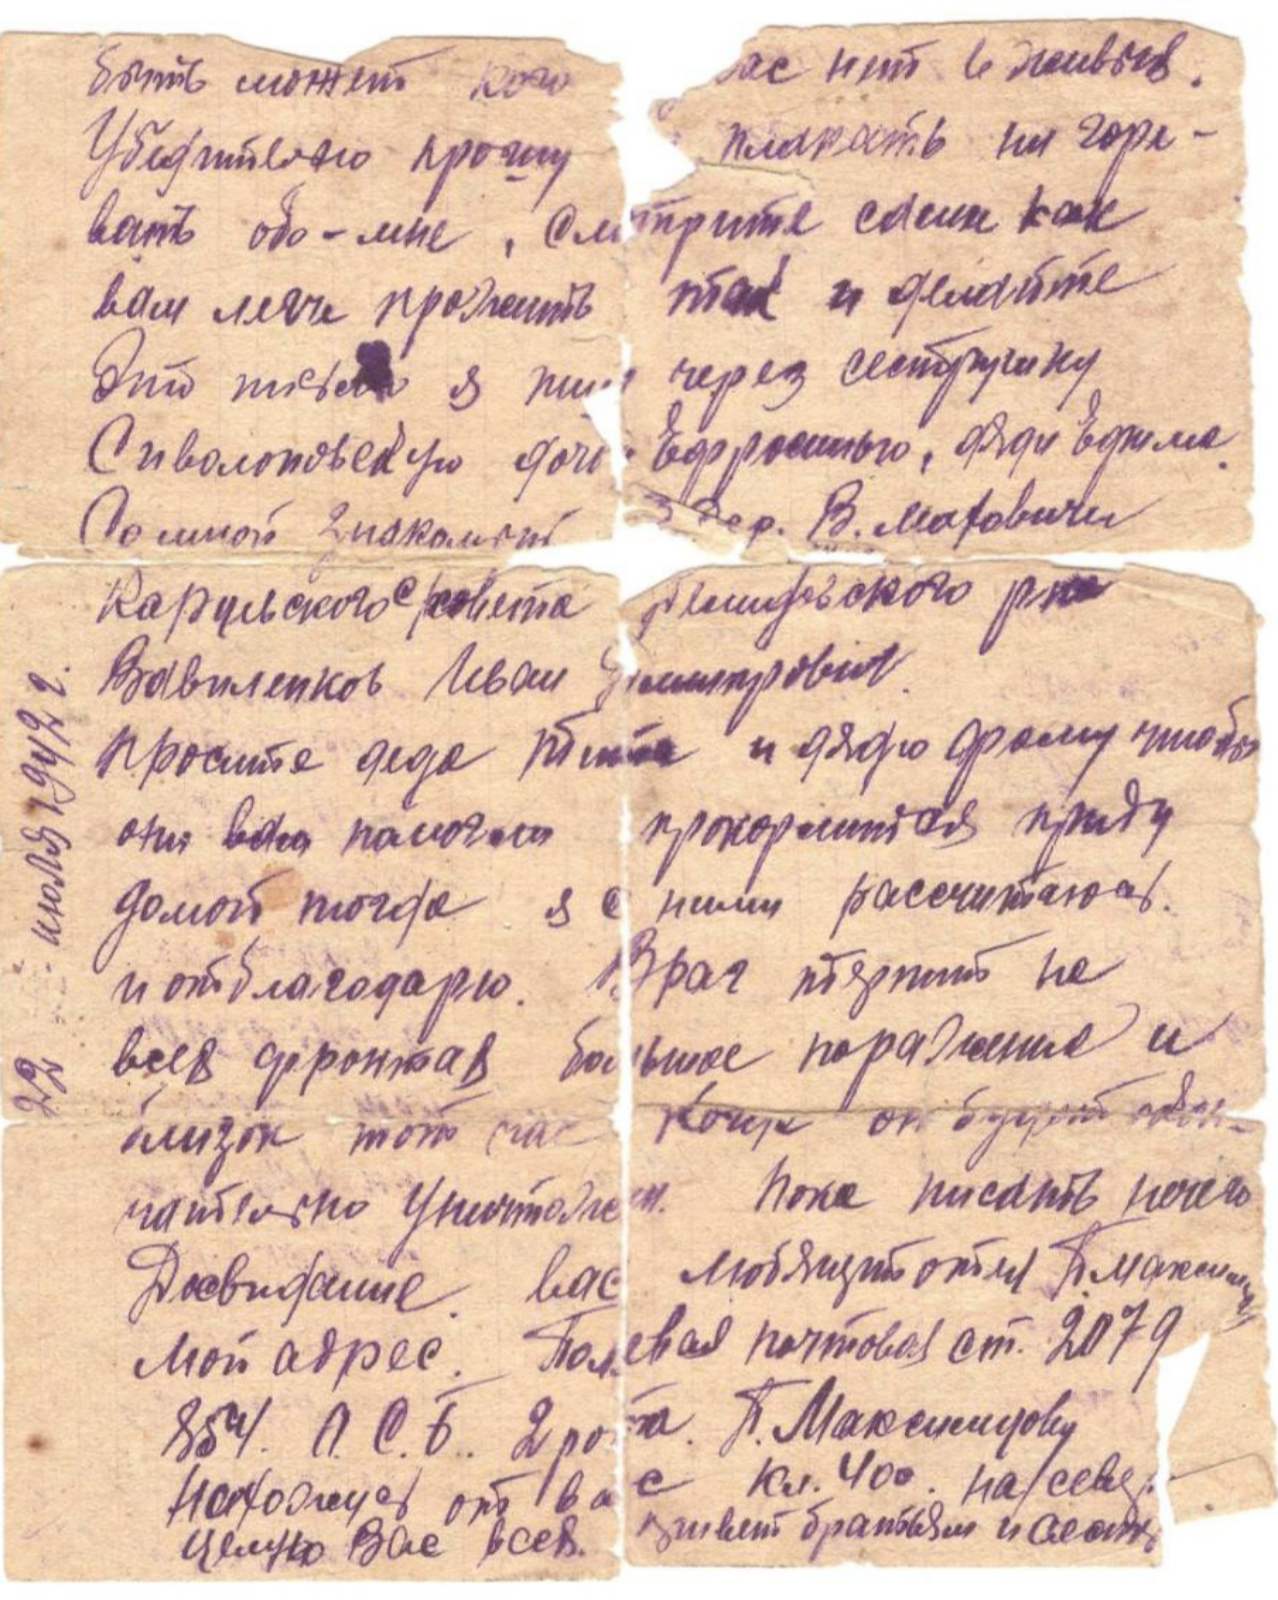 быть может кого вас нет в живых.
Убедительно прошу плакать ни горе-
вать обо-мне, смотрите сами как
вам легче прожить так и делайте
Это письмо я пишу через сестричку
дочь Ефросинью, дяди Ефима.
Со мной знакомый з дер. В. Маховичи
Карульского с/совета р-на
Вавиленков Иван Дмитрович.
Просите деда Тита и дядю Фому чтобы
они вам помогли прокормится приду
домой тогда я с ними рассчитаюсь.
и отблагодарю. Враг терпит на
всех фронтах большое поражение и
близок тот час когда он будет окон-
чательно уничтожен. Пока писать нечего
Досвидание. вас любящий отец П. Максимцов
Мой адрес. Полевая почтовая ст. 2079
854. А.С.Б. 2 рота. П. Максимцову
Нахожусь от вас км. 400. на север.
целую Вас всех. привет братьям и сестр
22 июля 1942 г.